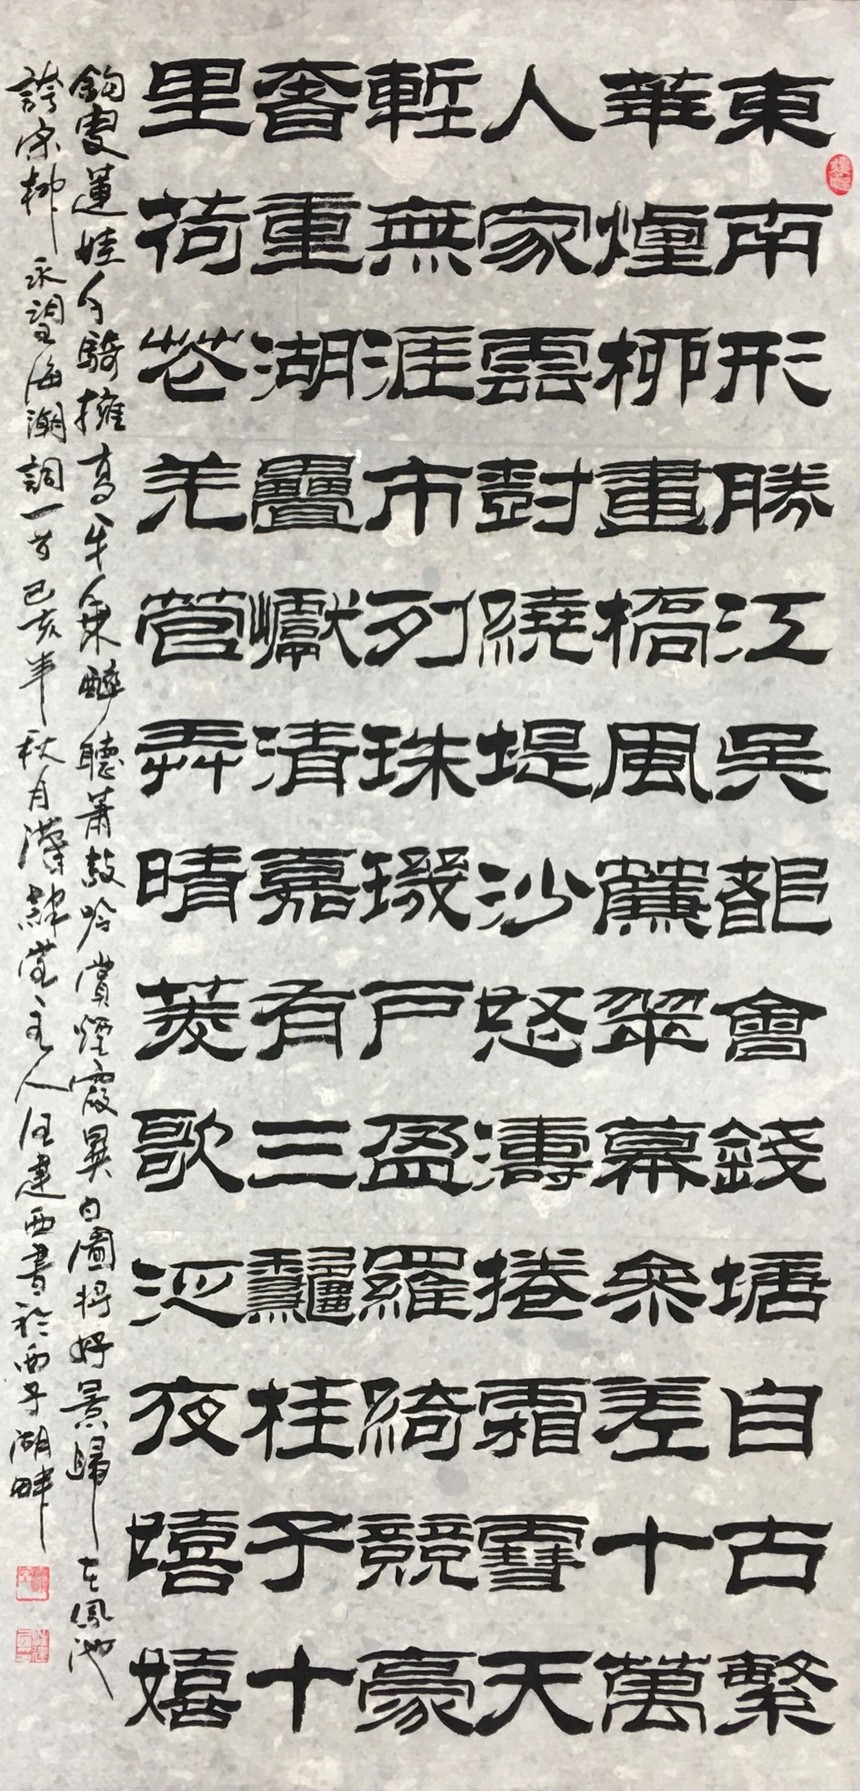 東南形勝江吳都會錢塘自古繁
華煙柳畫橋風簾翠幕參差十萬
人家雲尌繞堤沙怒濤捲霜雪天
塹無涯市列珠璣戶盈羅綺競豪
奢重湖疊巘清嘉有三龝桂子十
里荷花羌管弄晴菱歌泛夜嬉嬉
釣叟蓮娃千騎擁高牙乘醉聽蕭鼓吟賞煙霞異日圖將好景歸去鳳池
誇宋柳永望海潮詞一首己亥年秋月漢隸堂主人汪建西書於西子湖畔